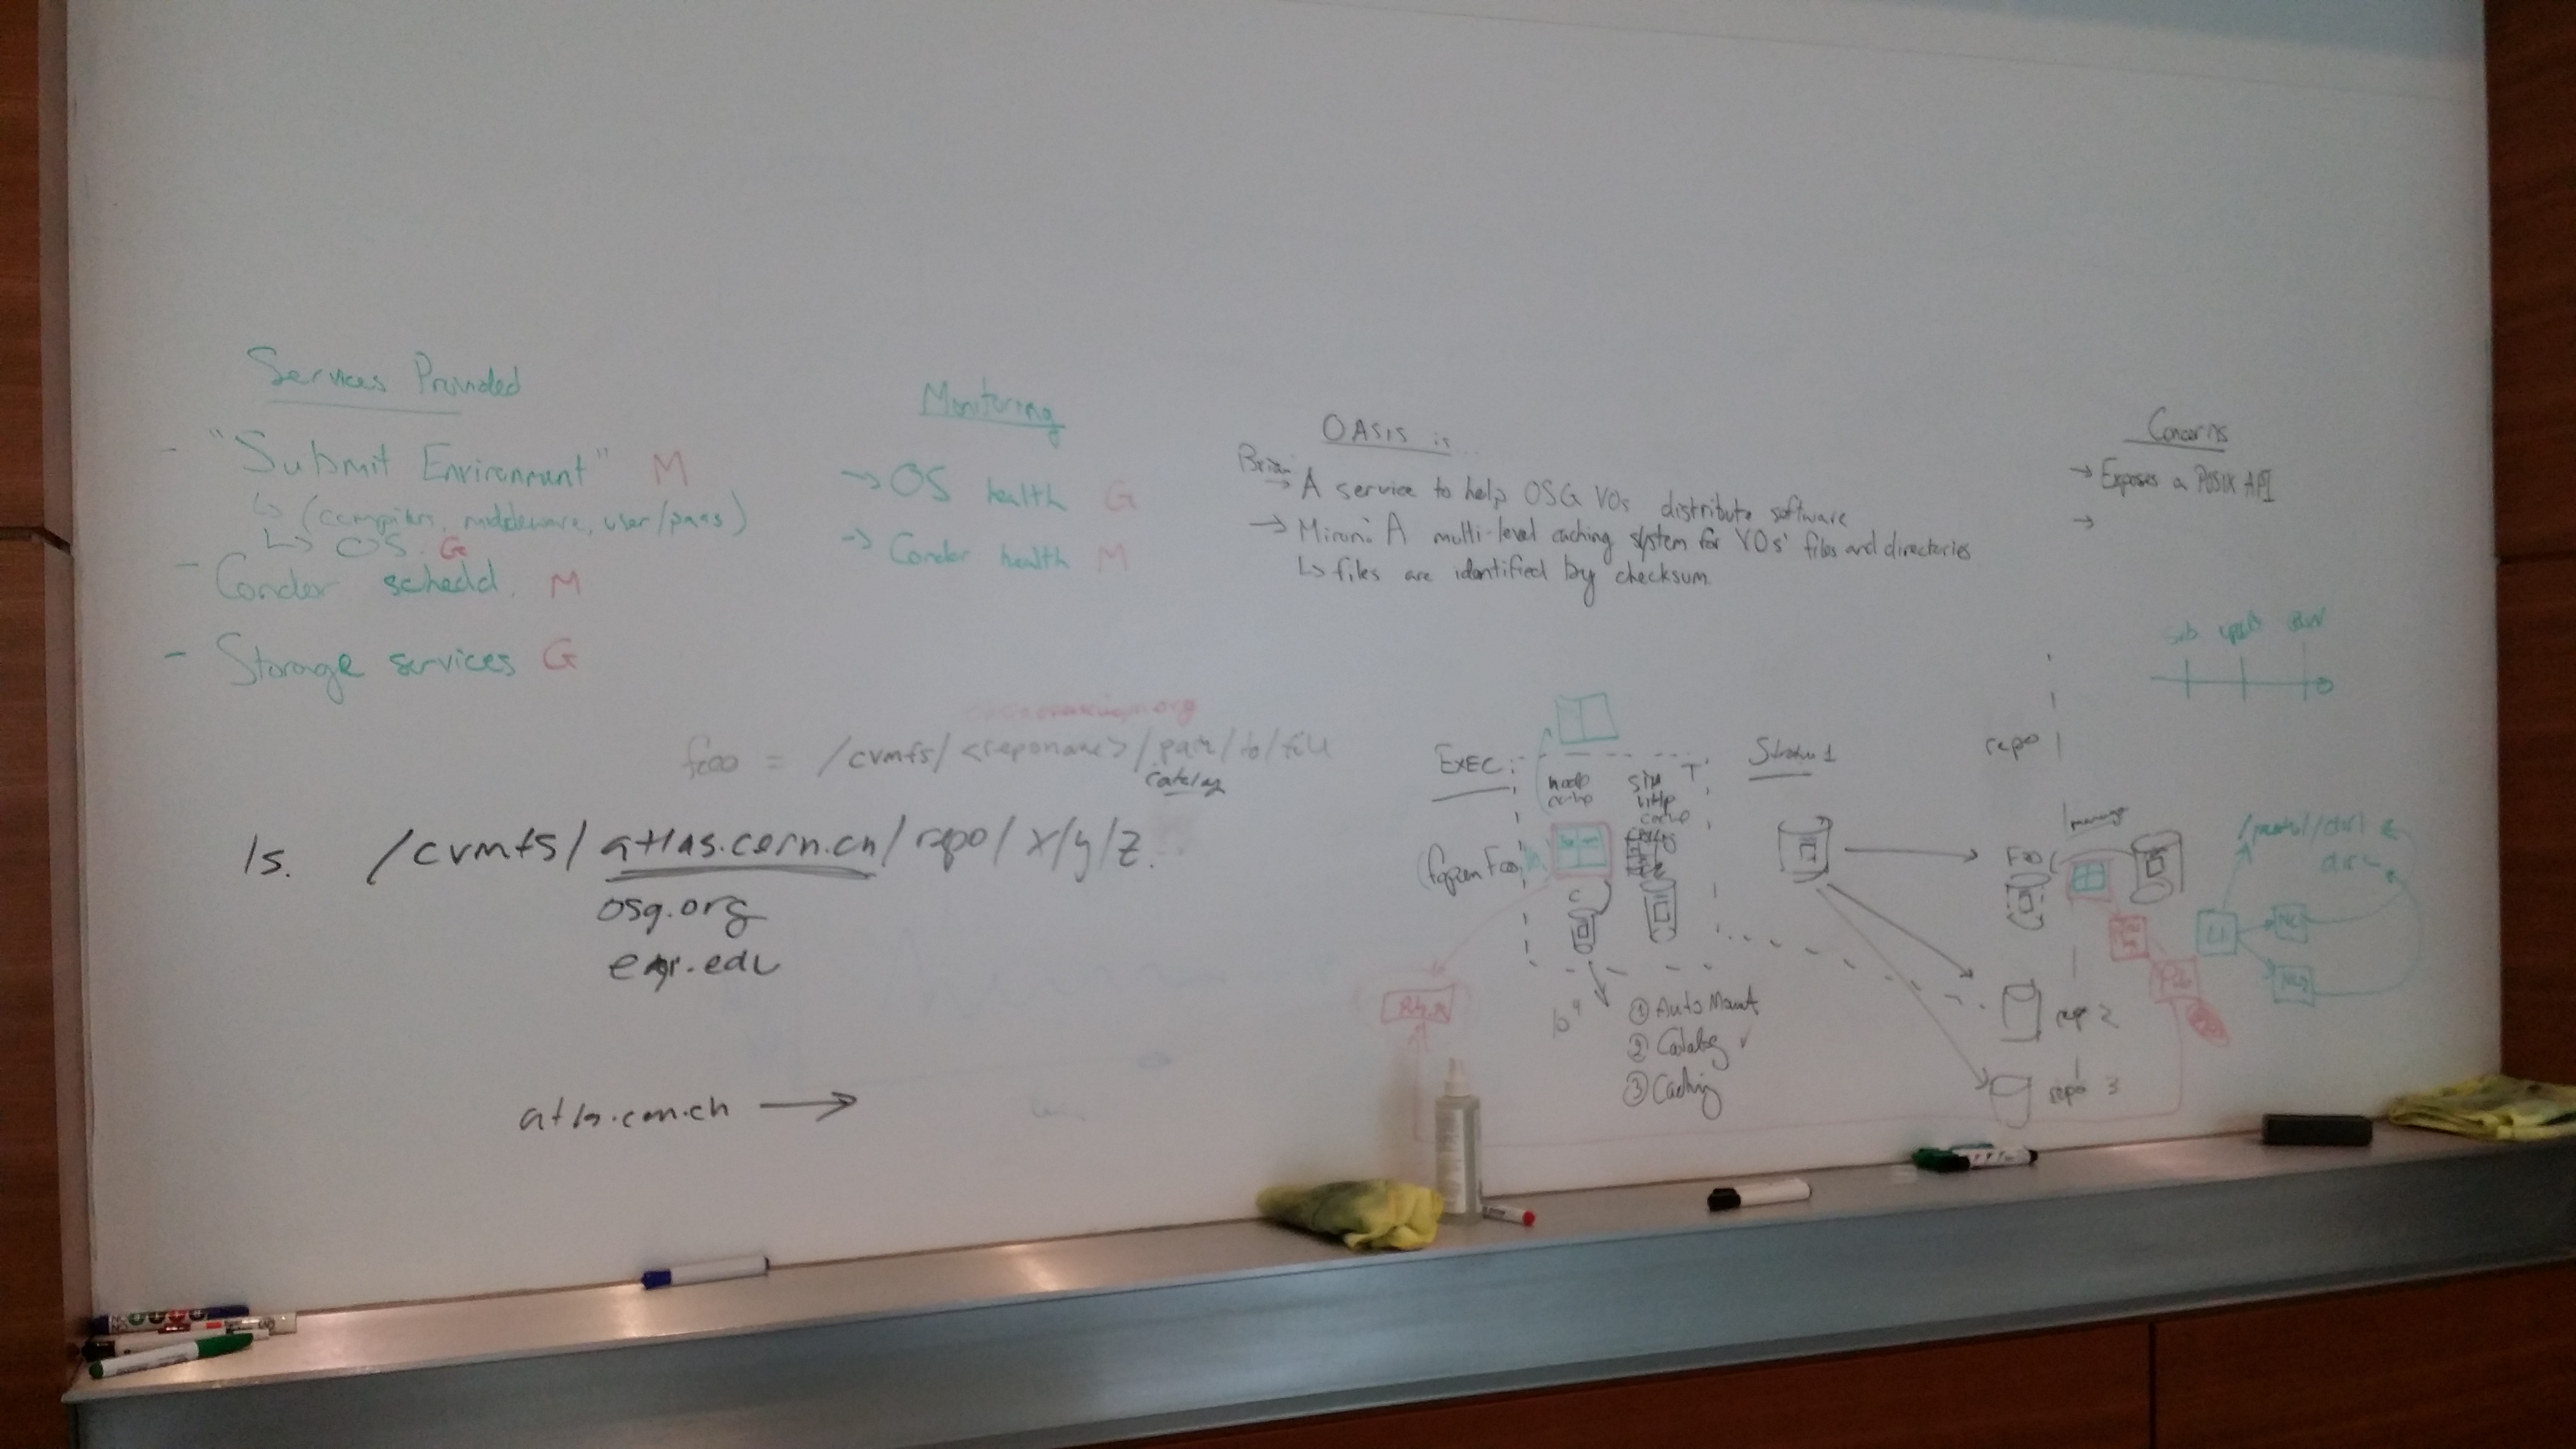 Services Provided
- "Submit Environment" M
↳ (compilers, middleware, user/pass)
↳ OS G
- Condor schedd. M
- Storage services G
Monitoring
→ OS health G
→ Condor health M
OASIS is...
Brian
→ A service to help OSG VOs distribute software
→ Miron: A multi-level caching system for VOs' files and directories
↳ files are identified by checksum.
Concerns
→ Exposes a POSIX API
→
foo = /cvmfs/<reponame>/path/to/file
catalog
ls. /cvmfs/atlas.cern.ch/repo/x/y/z.
osg.org
.edu
atlas.cern.ch →
EXEC:
node
cache
site
http
cache
Stratum 1
repo 1
fopen Foo
Foo
① AutoMount
② Catalog ✓
③ Caching
repo 2
repo 3